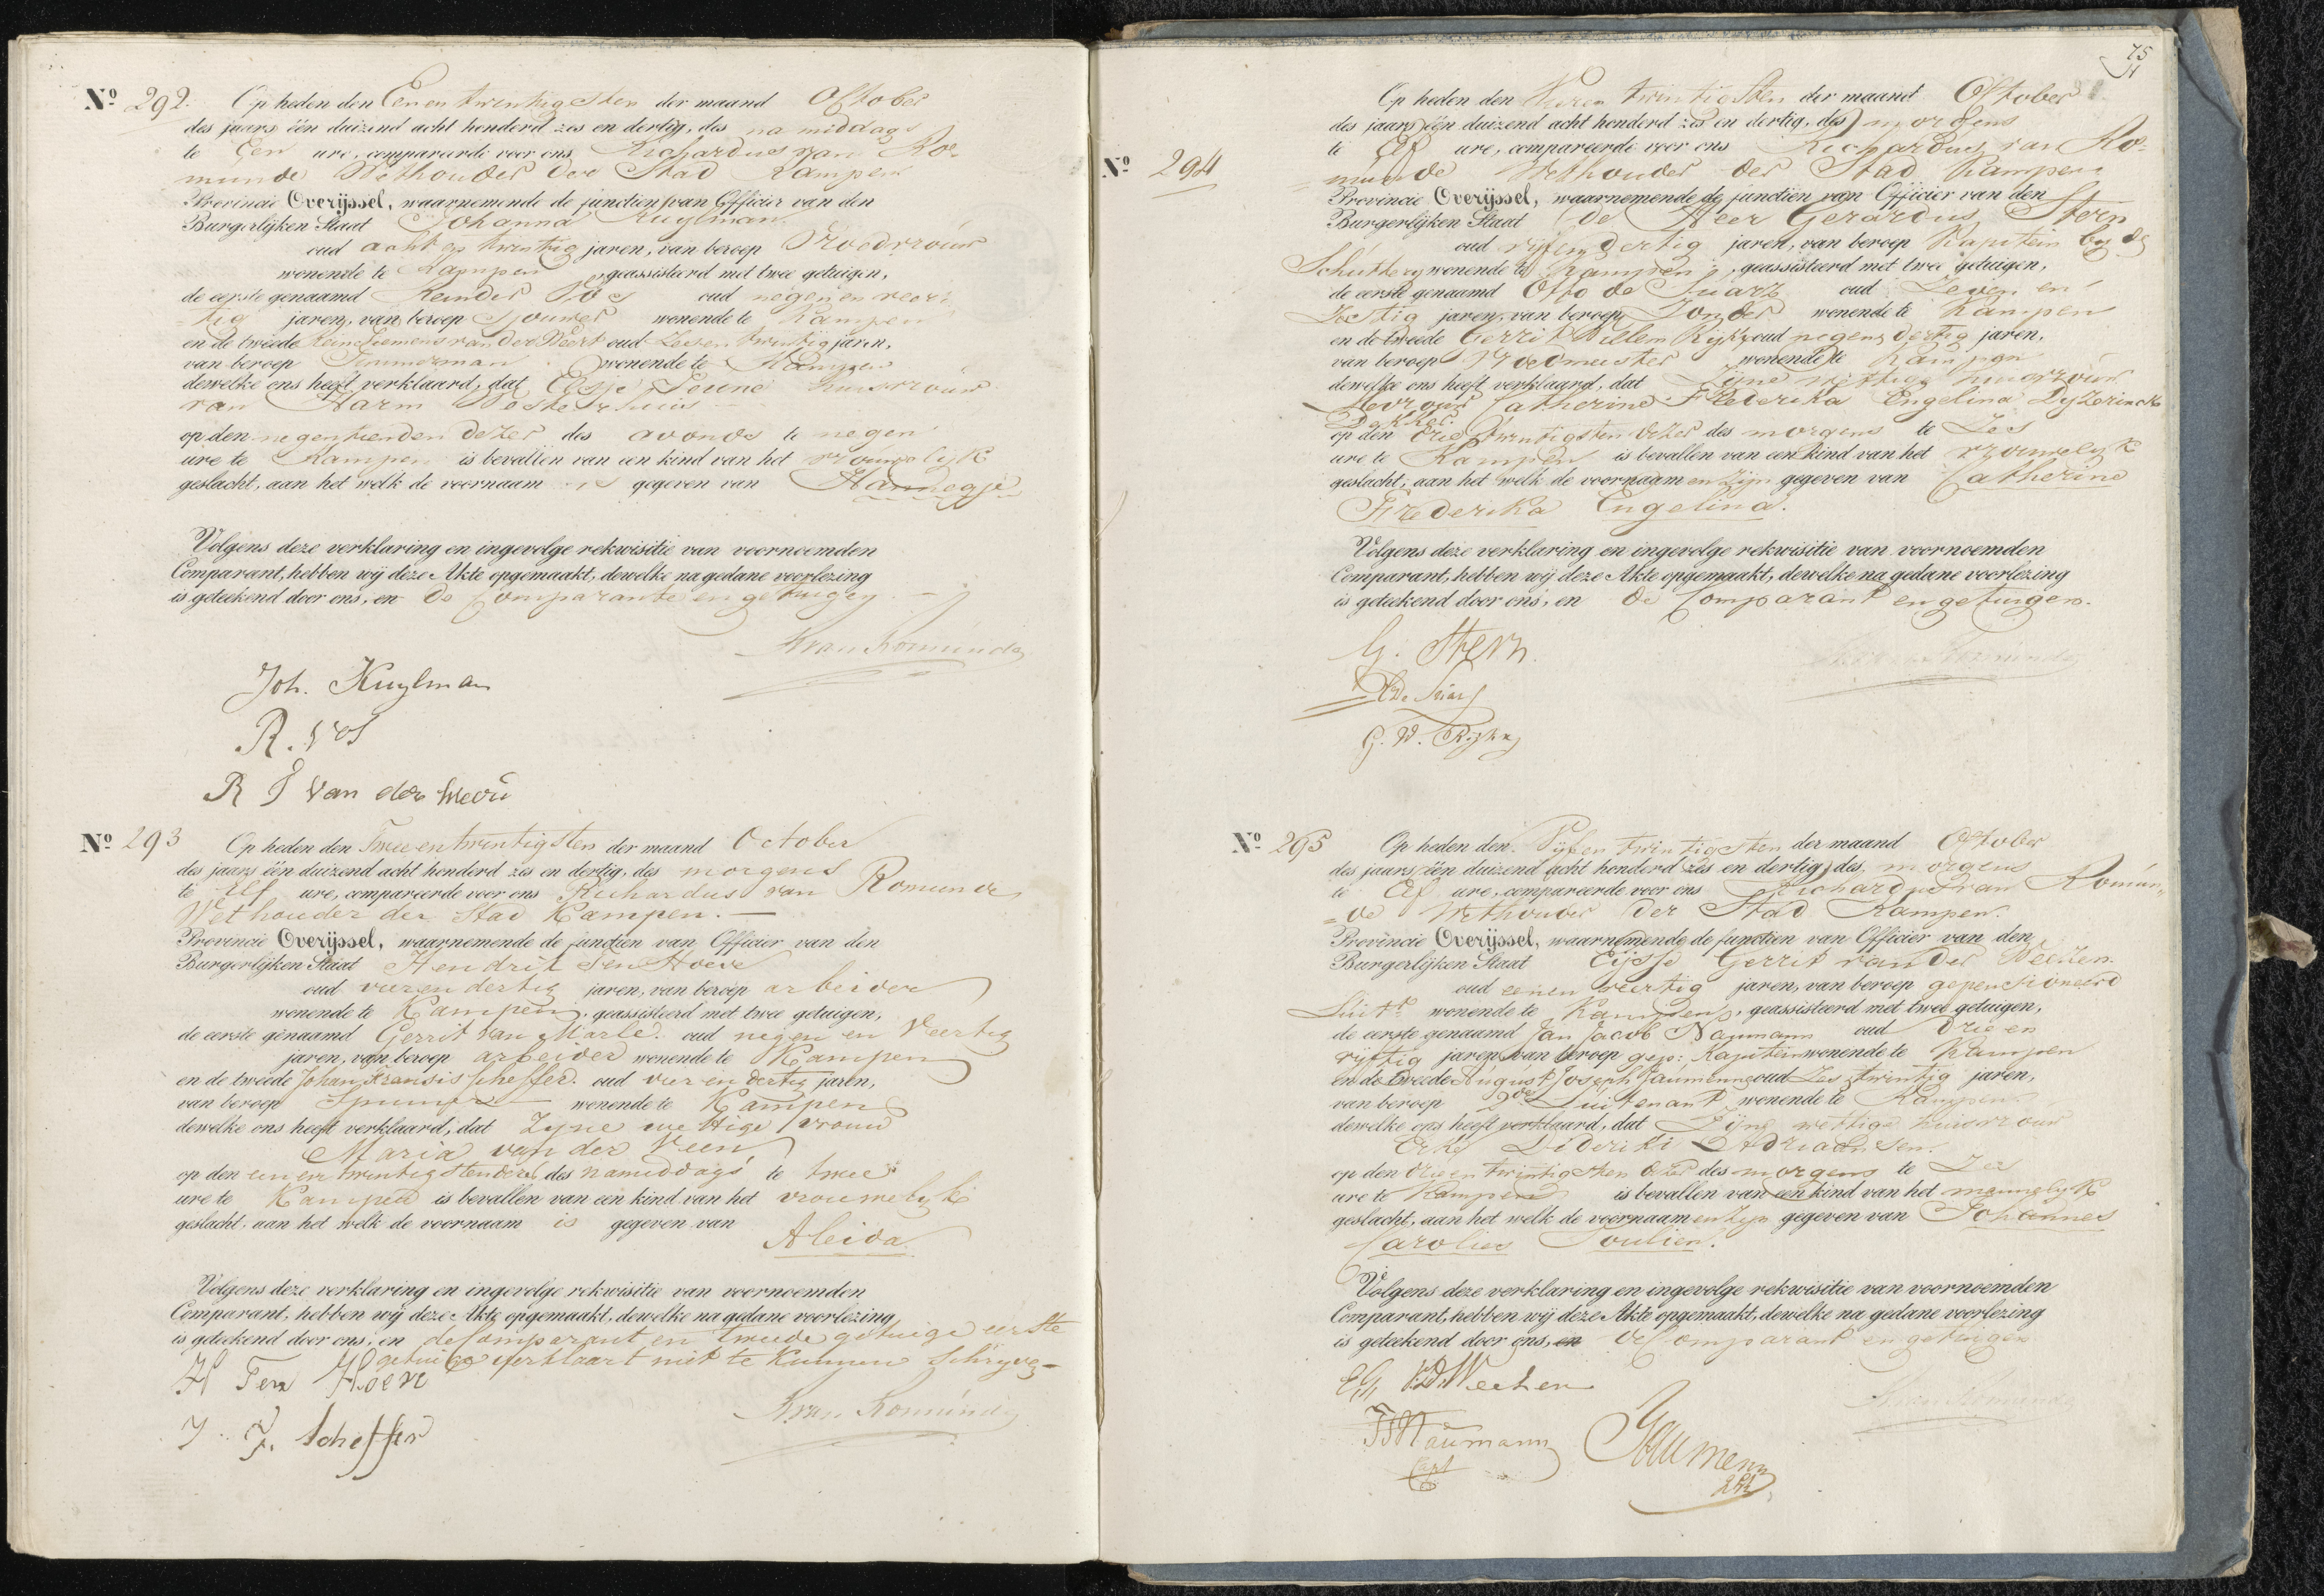 Nº 292. Op heden den Eenen twintigsten der maand October
des jaars één duizend acht honderd zes en dertig, des na middags
te Een ure, compareerde voor ons Richardus van Ro-
munde Wethouder der Stad Kampen
Provincie Overijssel, waarnemende de functien van Officier van den
Burgerlijken Staat Johanna Kuylman
oud acht en twintig jaren, van beroep Vroedvrouw
wonende te Kampen, geassisteerd met twee getuigen,
de eerste genaamd Reinder Vos oud negen en veer-
tig jaren, van beroep Sjouwer wonende te Kampen
en de tweede van der Weert oud Zes en twintig jaren,
van beroep Timmerman wonende te Kampen
dewelke ons heeft verklaard, dat Elsje huisvrouw
van Harm Oosterhuis
op den negentienden dezer des avonds te negen
ure te Kampen is bevallen van een kind van het vrouwelijk
geslacht, aan het welk de voornaam is gegeven van Hannegje
Volgens deze verklaring en ingevolge rekwisitie van voornoemden
Comparant, hebben wij deze Akte opgemaakt, dewelke na gedane voorlezing
is geteekend door ons, en de Comparante en getuigen.
R van Romunde
Joh. Kuylman
R. Vos
R J van der Weert
Nº 293 Op heden den Twee en twintigsten der maand October
des jaars één duizend acht honderd zes en dertig, des morgens
te Elf ure, compareerde voor ons Richardus van Romunde
Wethouder der Stad Kampen.
Provincie Overijssel, waarnemende de functien van Officier van den
Burgerlijken Staat Hendrik Ten Hoeve
oud vier en dertig jaren, van beroep arbeider
wonende te Kampen, geassisteerd met twee getuigen,
de eerste genaamd Gerrit van Marle. oud negen en Veertig
jaren, van beroep arbeider wonende te Kampen
en de tweede Johan Fransis Scheffer. oud vier en dertig jaren,
van beroep wonende te Kampen
dewelke ons heeft verklaard, dat Zyne wettige vrouw
Maria van der Veen
op den een en twintigsten dezer des namiddags te twee
ure te Kampen is bevallen van een kind van het vrouwelyk
geslacht, aan het welk de voornaam is gegeven van
Aleida
Volgens deze verklaring en ingevolge rekwisitie van voornoemden
Comparant, hebben wij deze Akte opgemaakt, dewelke na gedane voorlezing
is geteekend door ons, en de Comparant en tweede getuige eerste
getuige verklaart niet te kunnen Schryven
H Ten Hoeve
R van Romunde
J. F. Scheffer
75
Nº 294
Op heden den Vieren twintigsten der maand October
des jaars één duizend acht honderd zes en dertig, des morgens
te Elf ure, compareerde voor ons Richardus van Ro-
munde Wethouder der Stad Kampen
Provincie Overijssel, waarnemende de functien van Officier van den
Burgerlijken Staat de Heer Gerardus Stern
oud vijf en dertig jaren, van beroep Kapitein by de
Schuttery wonende te Kampen, geassisteerd met twee getuigen,
de eerste genaamd Otto de Suarz oud Zeven en
Zestig jaren, van beroep Zonder wonende te Kampen
en de tweede Gerrit Willem Rijks oud negen dertig jaren,
van beroep Vroedmeester wonende te Kampen
dewelke ons heeft verklaard, dat Zijne wettige huisvrouw
Mevrouw Catherine Frederika Engelina Dyzerinck
Dekker
op den drie twintigsten dezer des morgens te Zes
ure te Kampen is bevallen van een kind van het vrouwelyk
geslacht, aan het welk de voornaam en zijn gegeven van Catherine
Frederika Engelina.
Volgens deze verklaring en ingevolge rekwisitie van voornoemden
Comparant, hebben wij deze Akte opgemaakt, dewelke na gedane voorlezing
is geteekend door ons, en de Comparant en getuigen.
G. Stern.
R van Romunde
G. W. Rijks
Nº 295 Op heden den Vijfen twintigsten der maand October
des jaars één duizend acht honderd zes en dertig, des morgens
te Elf ure, compareerde voor ons Richardus van Romun-
de Wethouder der Stad Kampen.
Provincie Overijssel, waarnemende de functien van Officier van den
Burgerlijken Staat Eijsse Gerrit van der Weezen
oud eenen veertig jaren, van beroep gepensioneerd
Luit. wonende te Kampen, geassisteerd met twee getuigen,
de eerste genaamd Jan Jacob Naumann oud drie en
vyftig jaren, van beroep gep: Kapitein wonende te Kampen
en de tweede August Joseph Jaumenne oud Zes twintig jaren,
van beroep 2de Luitenant wonende te Kampen
dewelke ons heeft verklaard, dat Zijne wettige huisvrouw
Dideriki Adriaansen.
op den drie en twintigsten dezer des morgens te Zes
ure te Kampen is bevallen van een kind van het mannelyk
geslacht, aan het welk de voornaam en zijn gegeven van Johannes
Carolies Joulien.
Volgens deze verklaring en ingevolge rekwisitie van voornoemden
Comparant, hebben wij deze Akte opgemaakt, dewelke na gedane voorlezing
is geteekend door ons, en de Comparant en getuigen
R van Romunde
JJ Naumann
Capt
Jaumenn